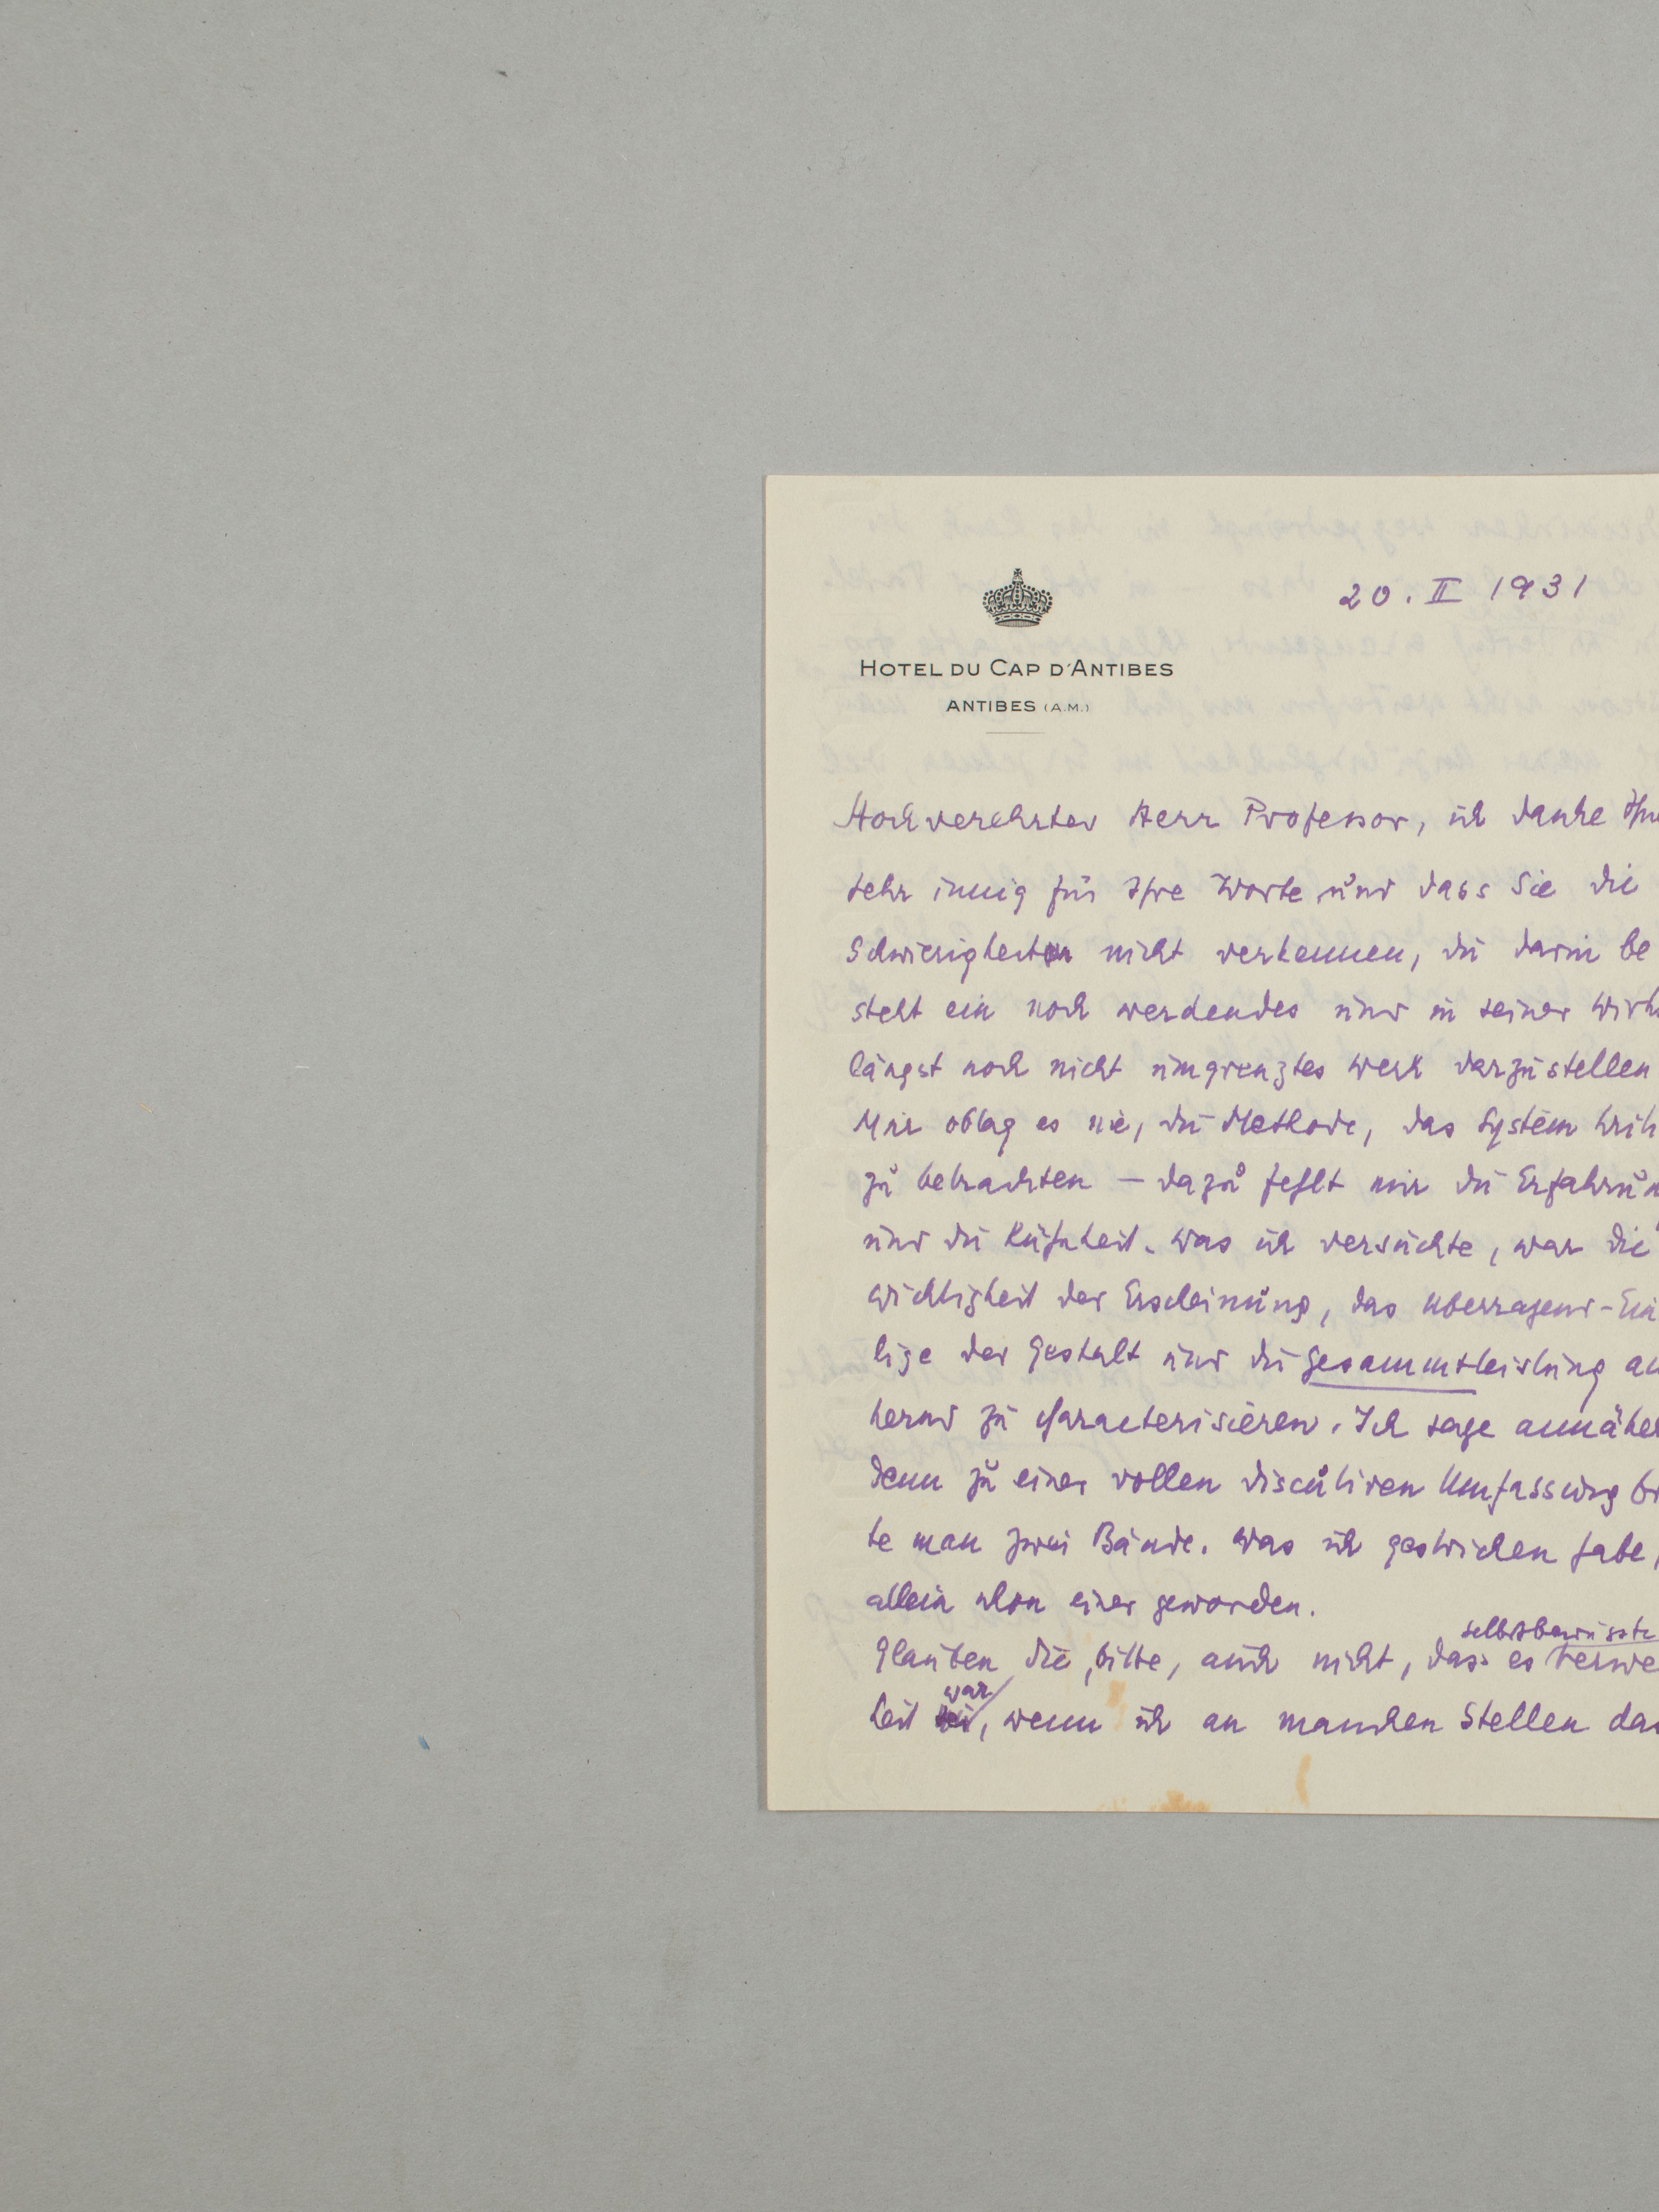 20. II 1931
HOTEL DU CAP D'ANTIBES
ANTIBES (A.M.)
Hochverehrter Herr Professor, ich danke Ihn
sehr innig für Ihre Worte und dass Sie die
Schwierigkeiten nicht verkennen, die darin be
steht ein noch werdendes und in seiner Wirk
längst noch nicht umgrenztes Werk darzustellen
Mir oblag es nie, die Methode, das System krit
zu betrachten – dazu fehlt mir die Erfahrun
und die Kühnheit. Was ich versuchte, war die
Wichtigkeit der Erscheinung, das Überragend-Ein
lige der Gestalt und die Gesammtleistung an
hernd zu characterisieren. Ich sage annäher
denn zu einer vollen discutiven Umfassung br
te man zwei Bände. Was ich gestrichen habe,
allein schon einer geworden.
selbstbewusste
Glauben Sie, bitte, auch nicht, dass es Verwe
war
heit sei, wenn ich an manchen Stellen das